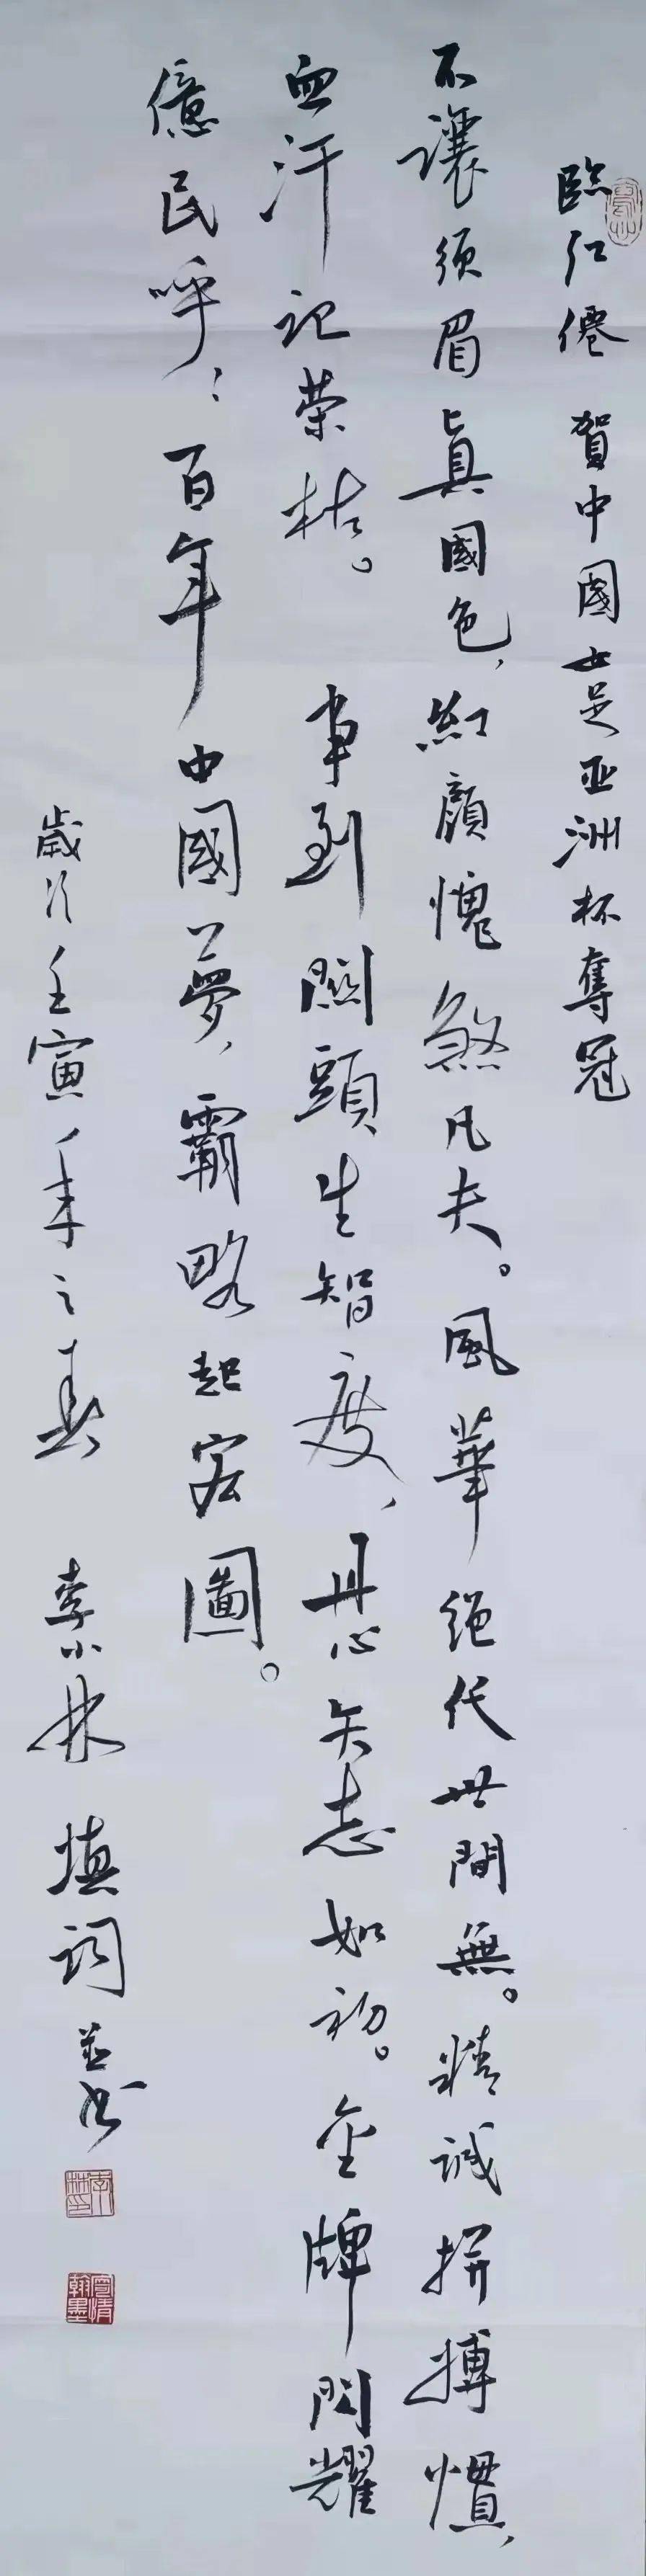 臨江僊 賀中國女足亚洲杯奪冠
不讓须眉真國色，紅顔愧煞凡夫。風華絕代世間無。精誠拼搏慣，
血汗记荣枯。 事到關頭生智度，丹心矢志如初。金牌閃耀
億民呼：百年中國夢，霸略起宏圖。
歲次壬寅年之春 李小林 填詞並书
寄情翰墨